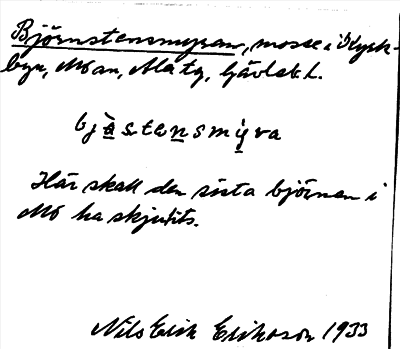 Björnstensmyran, mosse i Kyrk-
byn, Mo sn, Älvtg, Gävleb l.
bjàstensmy̲ra
Här skall den sista björnen i
Mo ha skjutits.
Nils Erik Erikson 1933